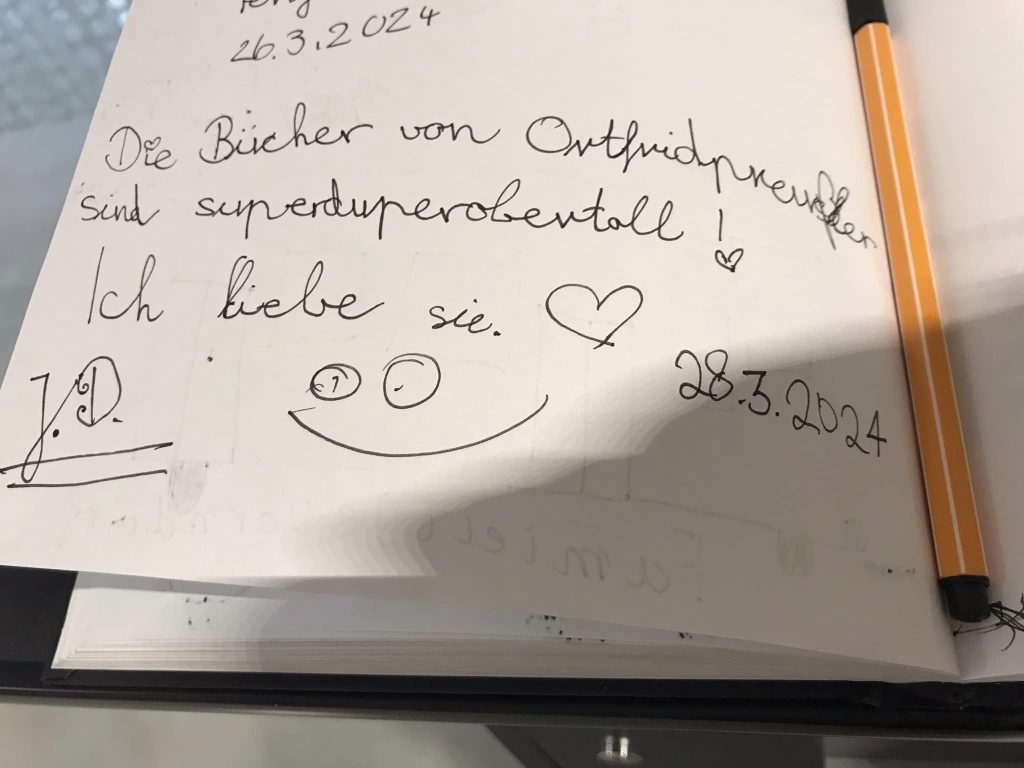 26.3.2024
Die Bücher von Ortfridpreußler
sind superduperobertoll!
Ich liebe sie.
J.D.
28.3.2024